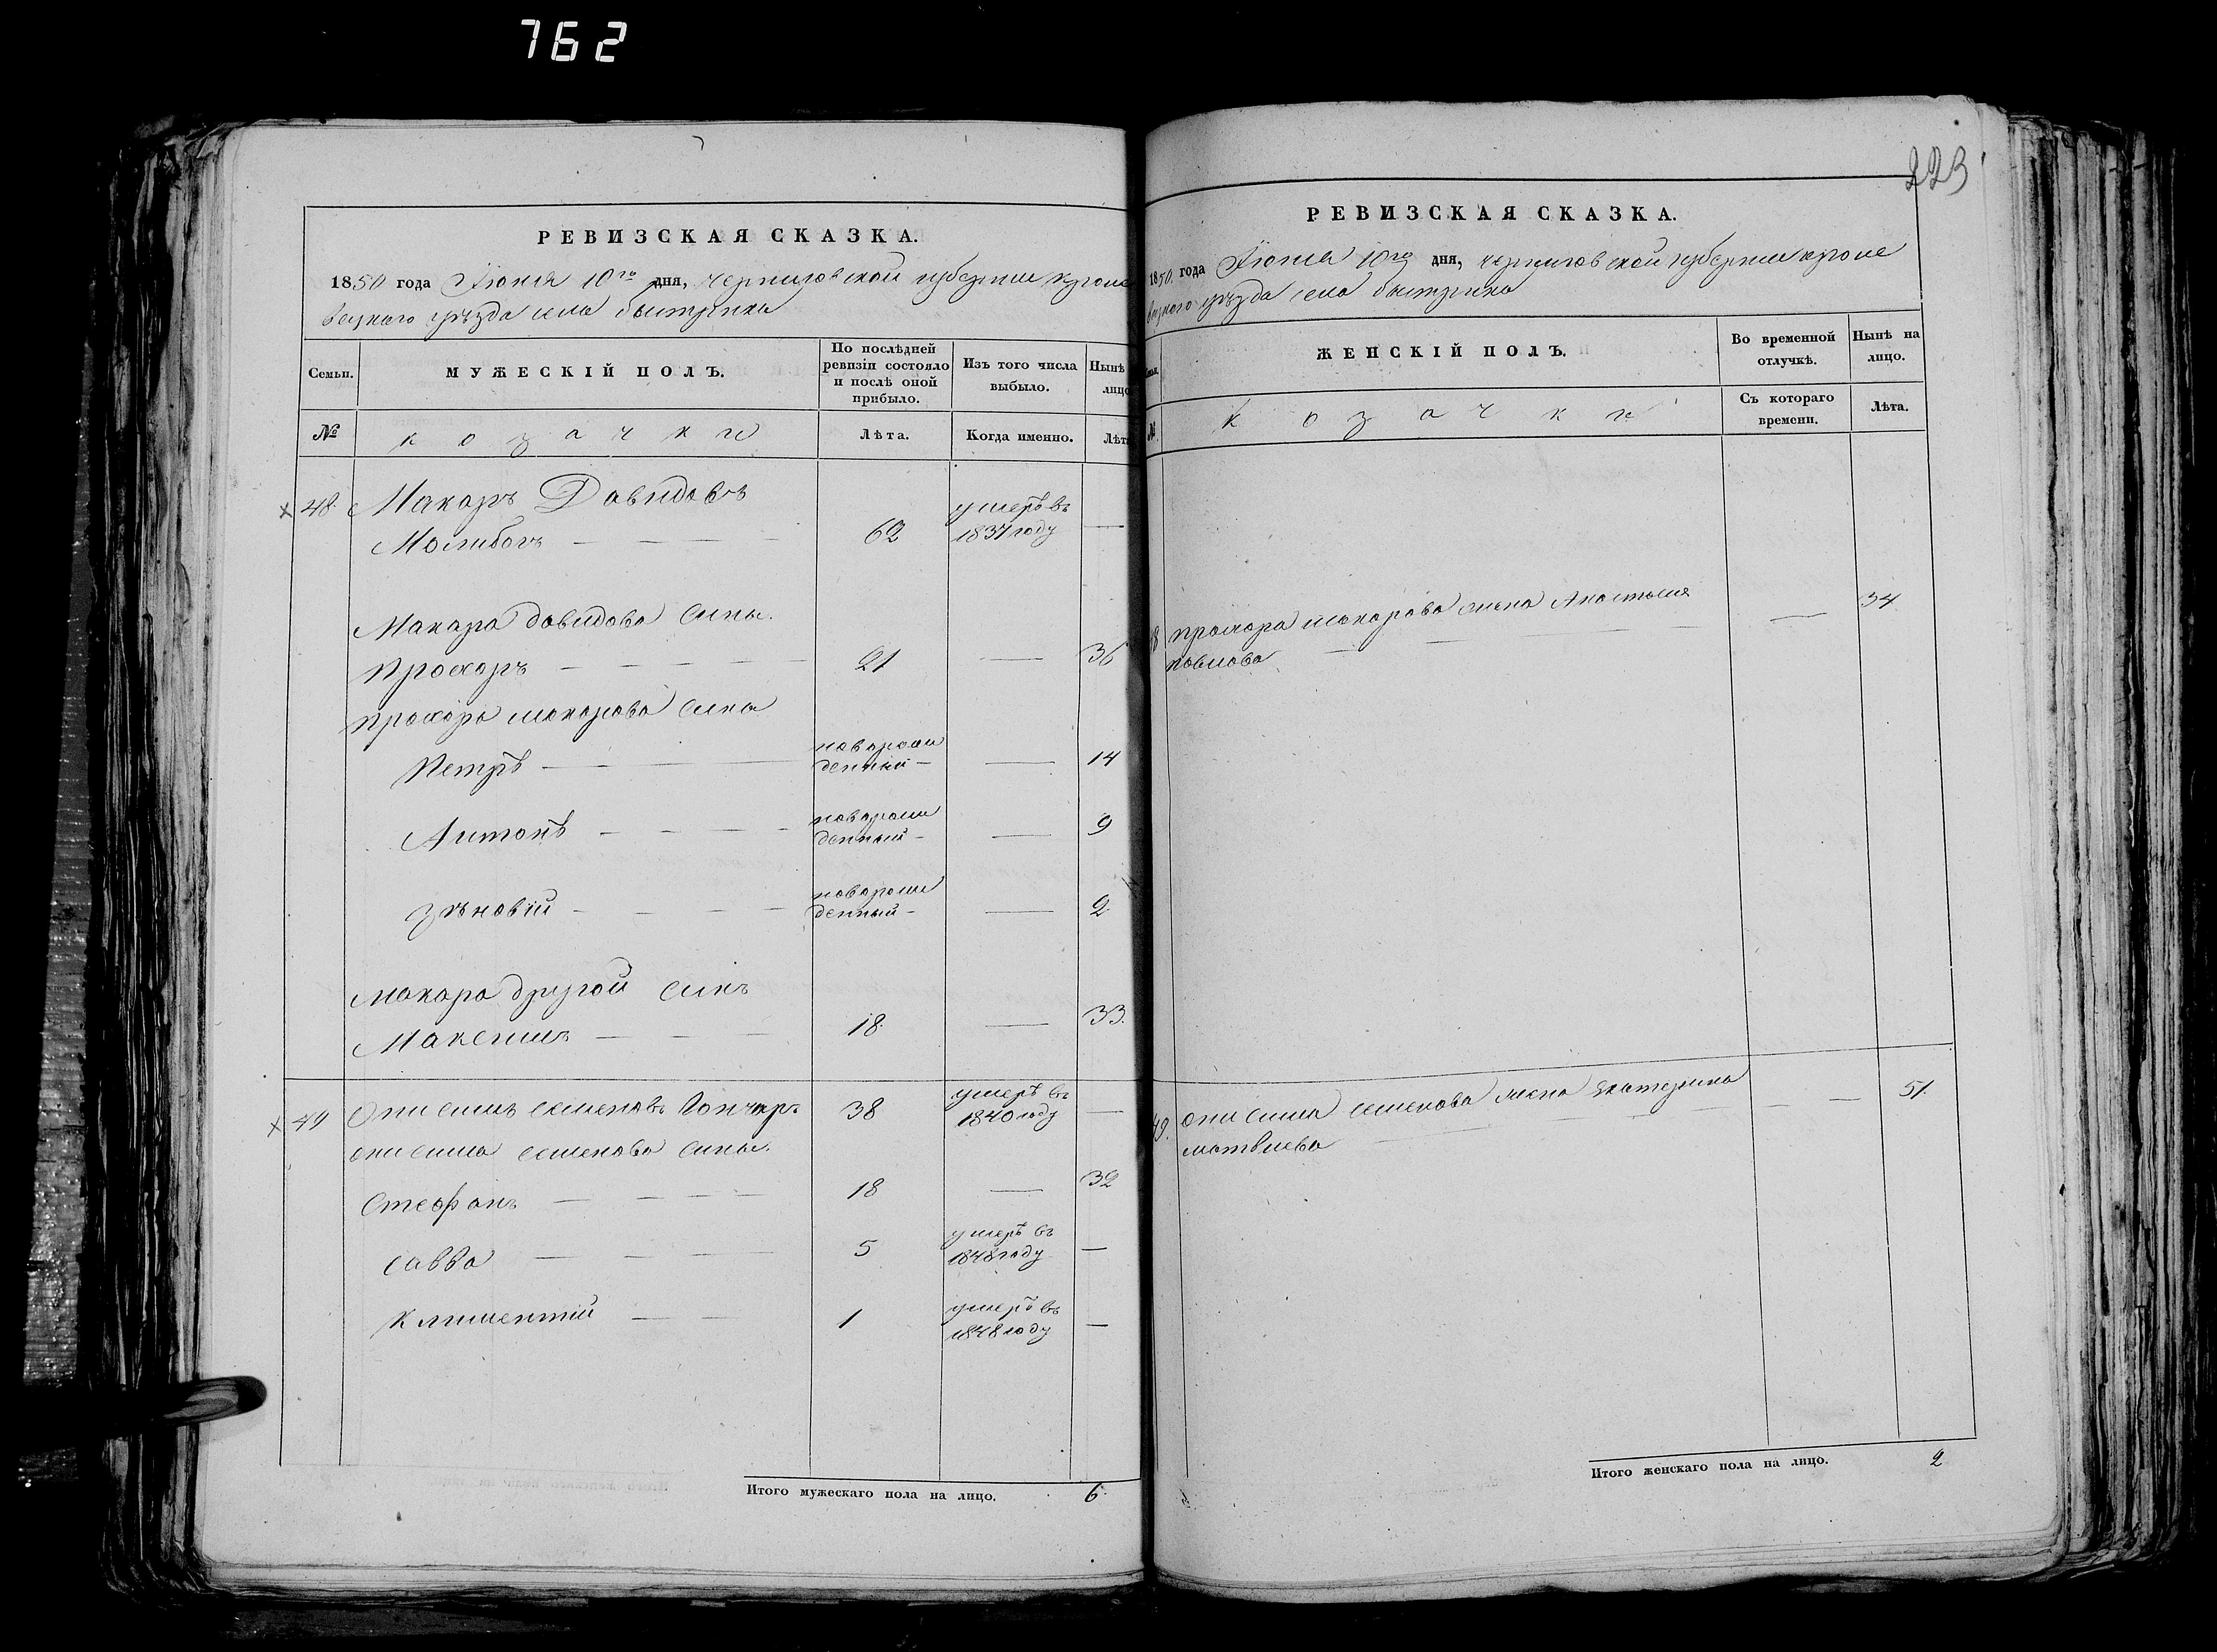 762
РЕВИЗСКАЯ СКАЗКА.
1850 года Іюня 10го дня, черниговской губерніи кроле
вецкого уѣзда села быстрика
Семьи.
МУЖЕСКІЙ ПОЛЪ.
По послѣдней
ревизіи состояло
и послѣ оной
прибыло.
Изъ того числа
выбыло.
Нынѣ
лицо
№
козачки
Лѣта.
Когда именно.
Лѣт
48 Макаръ Давидовъ
Молибогъ — — — — 62 умерѣ въ 1837 году —
Макара давидова сины.
Прохоръ — — — — — 21 — 36
прохора макарова сины
Петрѣ — — — новорож
денный — — 14
Антонѣ — — — — новорож
денный — — 9
Зѣновій — — — — новорож
денный — — 2
Макара другой синъ
Максимъ — — — 18 — 33.
49 Онисимъ семеновъ Гончаръ 38 умерѣ въ 1840 году —
онисима семенова сины.
Стефанъ — — — — 18 — 32
савва — — — — 5 умерѣ въ 1848 году —
Климентій — — 1 умерѣ въ 1848 году —
Итого мужескаго пола на лицо. 6.
223
РЕВИЗСКАЯ СКАЗКА.
1850 года Іюня 10го дня, черниговской губерніи кроле
вецкого уѣзда села быстрика
ЖЕНСКІЙ ПОЛЪ.
Во временной
отлучкѣ.
Нынѣ на
лицо.
№
козачки
Съ котораго
времени.
Лѣта.
8 прохора макарова жена Анастасия — 34
павлова — — —
49. онисима семенова жена Екатерина — 51.
матвиева
Итого женскаго пола на лицо. 2